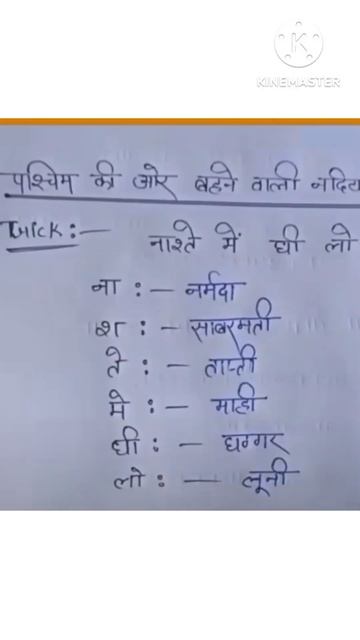 KINEMASTER
पश्चिम की ओर बहने वाली नदिय
Trick :— नाश्ते में घी लो
ना : — नर्मदा
श : — साबरमती
ते : — ताप्ती
मे : — माही
घी : — घग्गर
लो : — लूनी